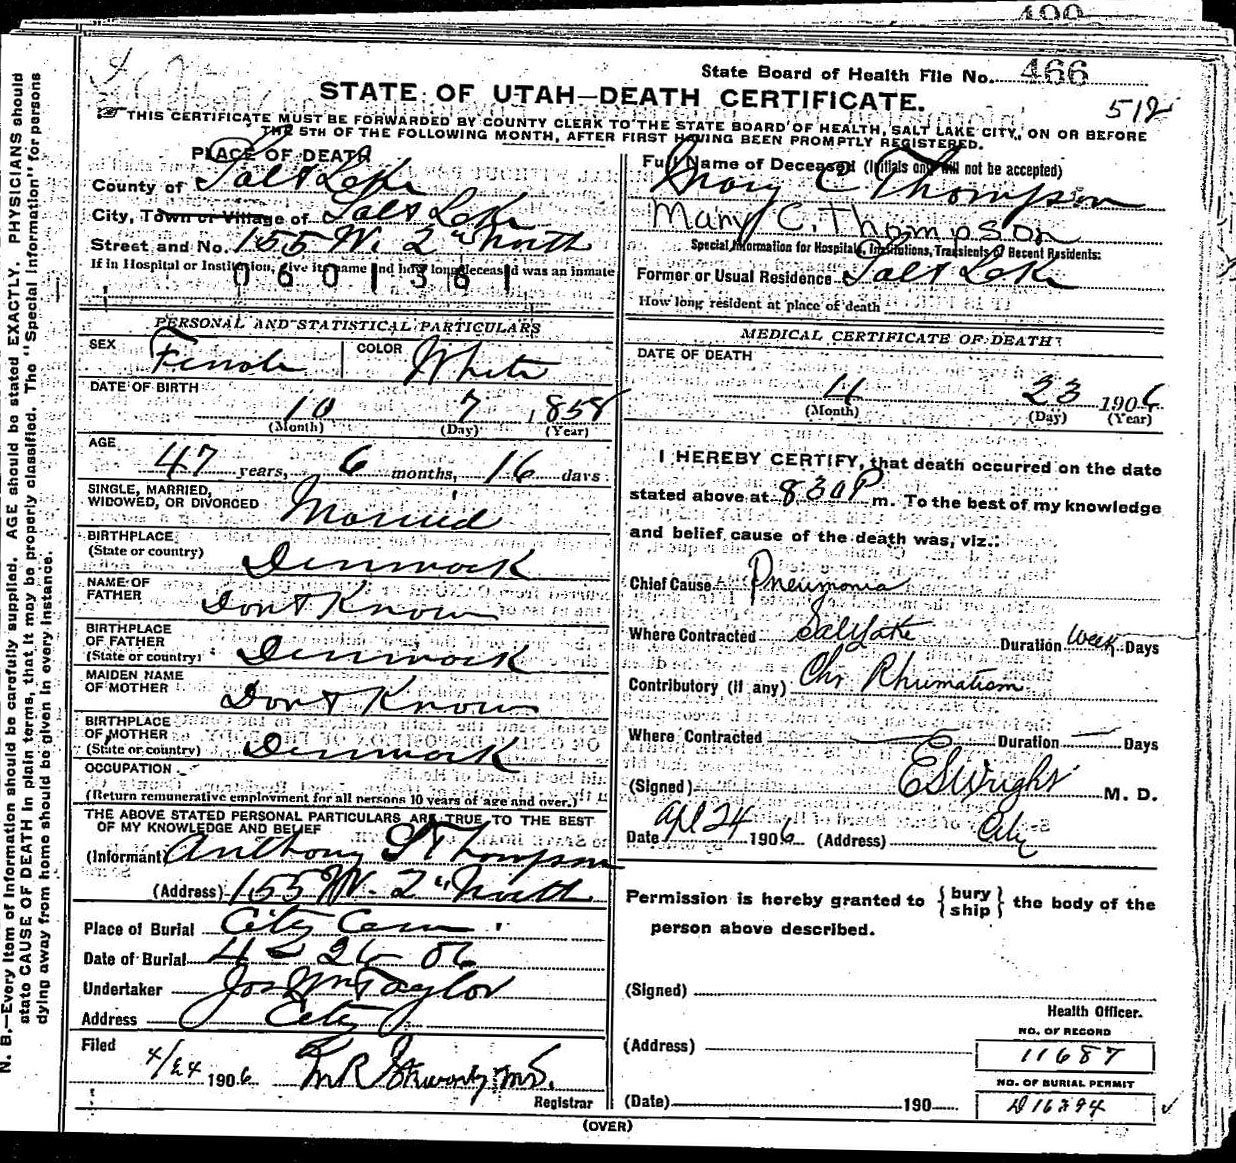 400
State Board of Health File No. 466
STATE OF UTAH—DEATH CERTIFICATE.
512
THIS CERTIFICATE MUST BE FORWARDED BY COUNTY CLERK TO THE STATE BOARD OF HEALTH, SALT LAKE CITY, ON OR BEFORE
THE 5TH OF THE FOLLOWING MONTH, AFTER FIRST HAVING BEEN PROMPTLY REGISTERED.
PLACE OF DEATH
County of Salt Lake
City, Town or Village of Salt Lake
Street and No. 155 W. 2" North
If in Hospital or Institution, give its name and how long deceased was an inmate
0601361
PERSONAL AND STATISTICAL PARTICULARS
SEX Female COLOR White
DATE OF BIRTH
10 7 1858
(Month) (Day) (Year)
AGE
47 years, 6 months, 16 days
SINGLE, MARRIED,
WIDOWED, OR DIVORCED Married
BIRTHPLACE
(State or country) Denmark
NAME OF
FATHER Dont Know
BIRTHPLACE
OF FATHER
(State or country) Denmark
MAIDEN NAME
OF MOTHER Dont Know
BIRTHPLACE
OF MOTHER
(State or country) Denmark
OCCUPATION
(Return remunerative employment for all persons 10 years of age and over.)
THE ABOVE STATED PERSONAL PARTICULARS ARE TRUE TO THE BEST
OF MY KNOWLEDGE AND BELIEF
(Informant) Anthony S Thompson
(Address) 155 W. 2" North
Place of Burial City Cem
Date of Burial 4-26-06
Undertaker Jos Wm Taylor
Address City
Filed
4/24 1906
Registrar
Full Name of Deceased (Initials only will not be accepted)
Mary C Thompson
Mary C. Thompson
Special Information for Hospitals, Institutions, Transients or Recent Residents:
Former or Usual Residence Salt Lake
How long resident at place of death
MEDICAL CERTIFICATE OF DEATH
DATE OF DEATH
4 23 1906
(Month) (Day) (Year)
I HEREBY CERTIFY, that death occurred on the date
stated above at 830 P m. To the best of my knowledge
and belief, cause of the death was, viz.:
Chief Cause Pneumonia
Where Contracted Salt Lake Duration Week Days
Contributory (if any) Chr Rhumatism
Where Contracted Duration Days
(Signed) E S Wright M. D.
Date Apl 24 1906 (Address) City
Permission is hereby granted to {bury
ship} the body of the
person above described.
(Signed)
Health Officer.
NO. OF RECORD
(Address) 11687
NO. OF BURIAL PERMIT
(Date) 190
(OVER)
N. B.—Every item of information should be carefully supplied. AGE should be stated EXACTLY. PHYSICIANS should
state CAUSE OF DEATH in plain terms, that it may be properly classified. The "Special Information" for persons
dying away from home should be given in every instance.